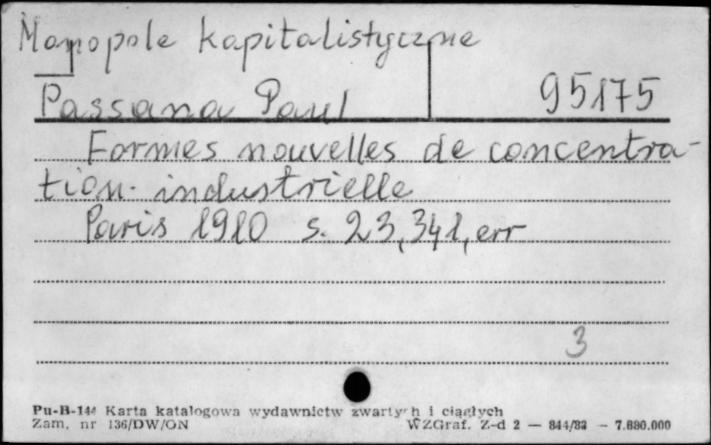 Monopole kapitalistyczne
Passama Paul 95175
Formes nouvelles de concentra-
tion industrielle
Paris 1910 s. 23,341, err
3
Pu-B-144 Karta katalogowa wydawnictw zwartych i ciągłych
Zam. nr 136/DW/ON WZGraf. Z-d 2 — 844/83 — 7.880.000